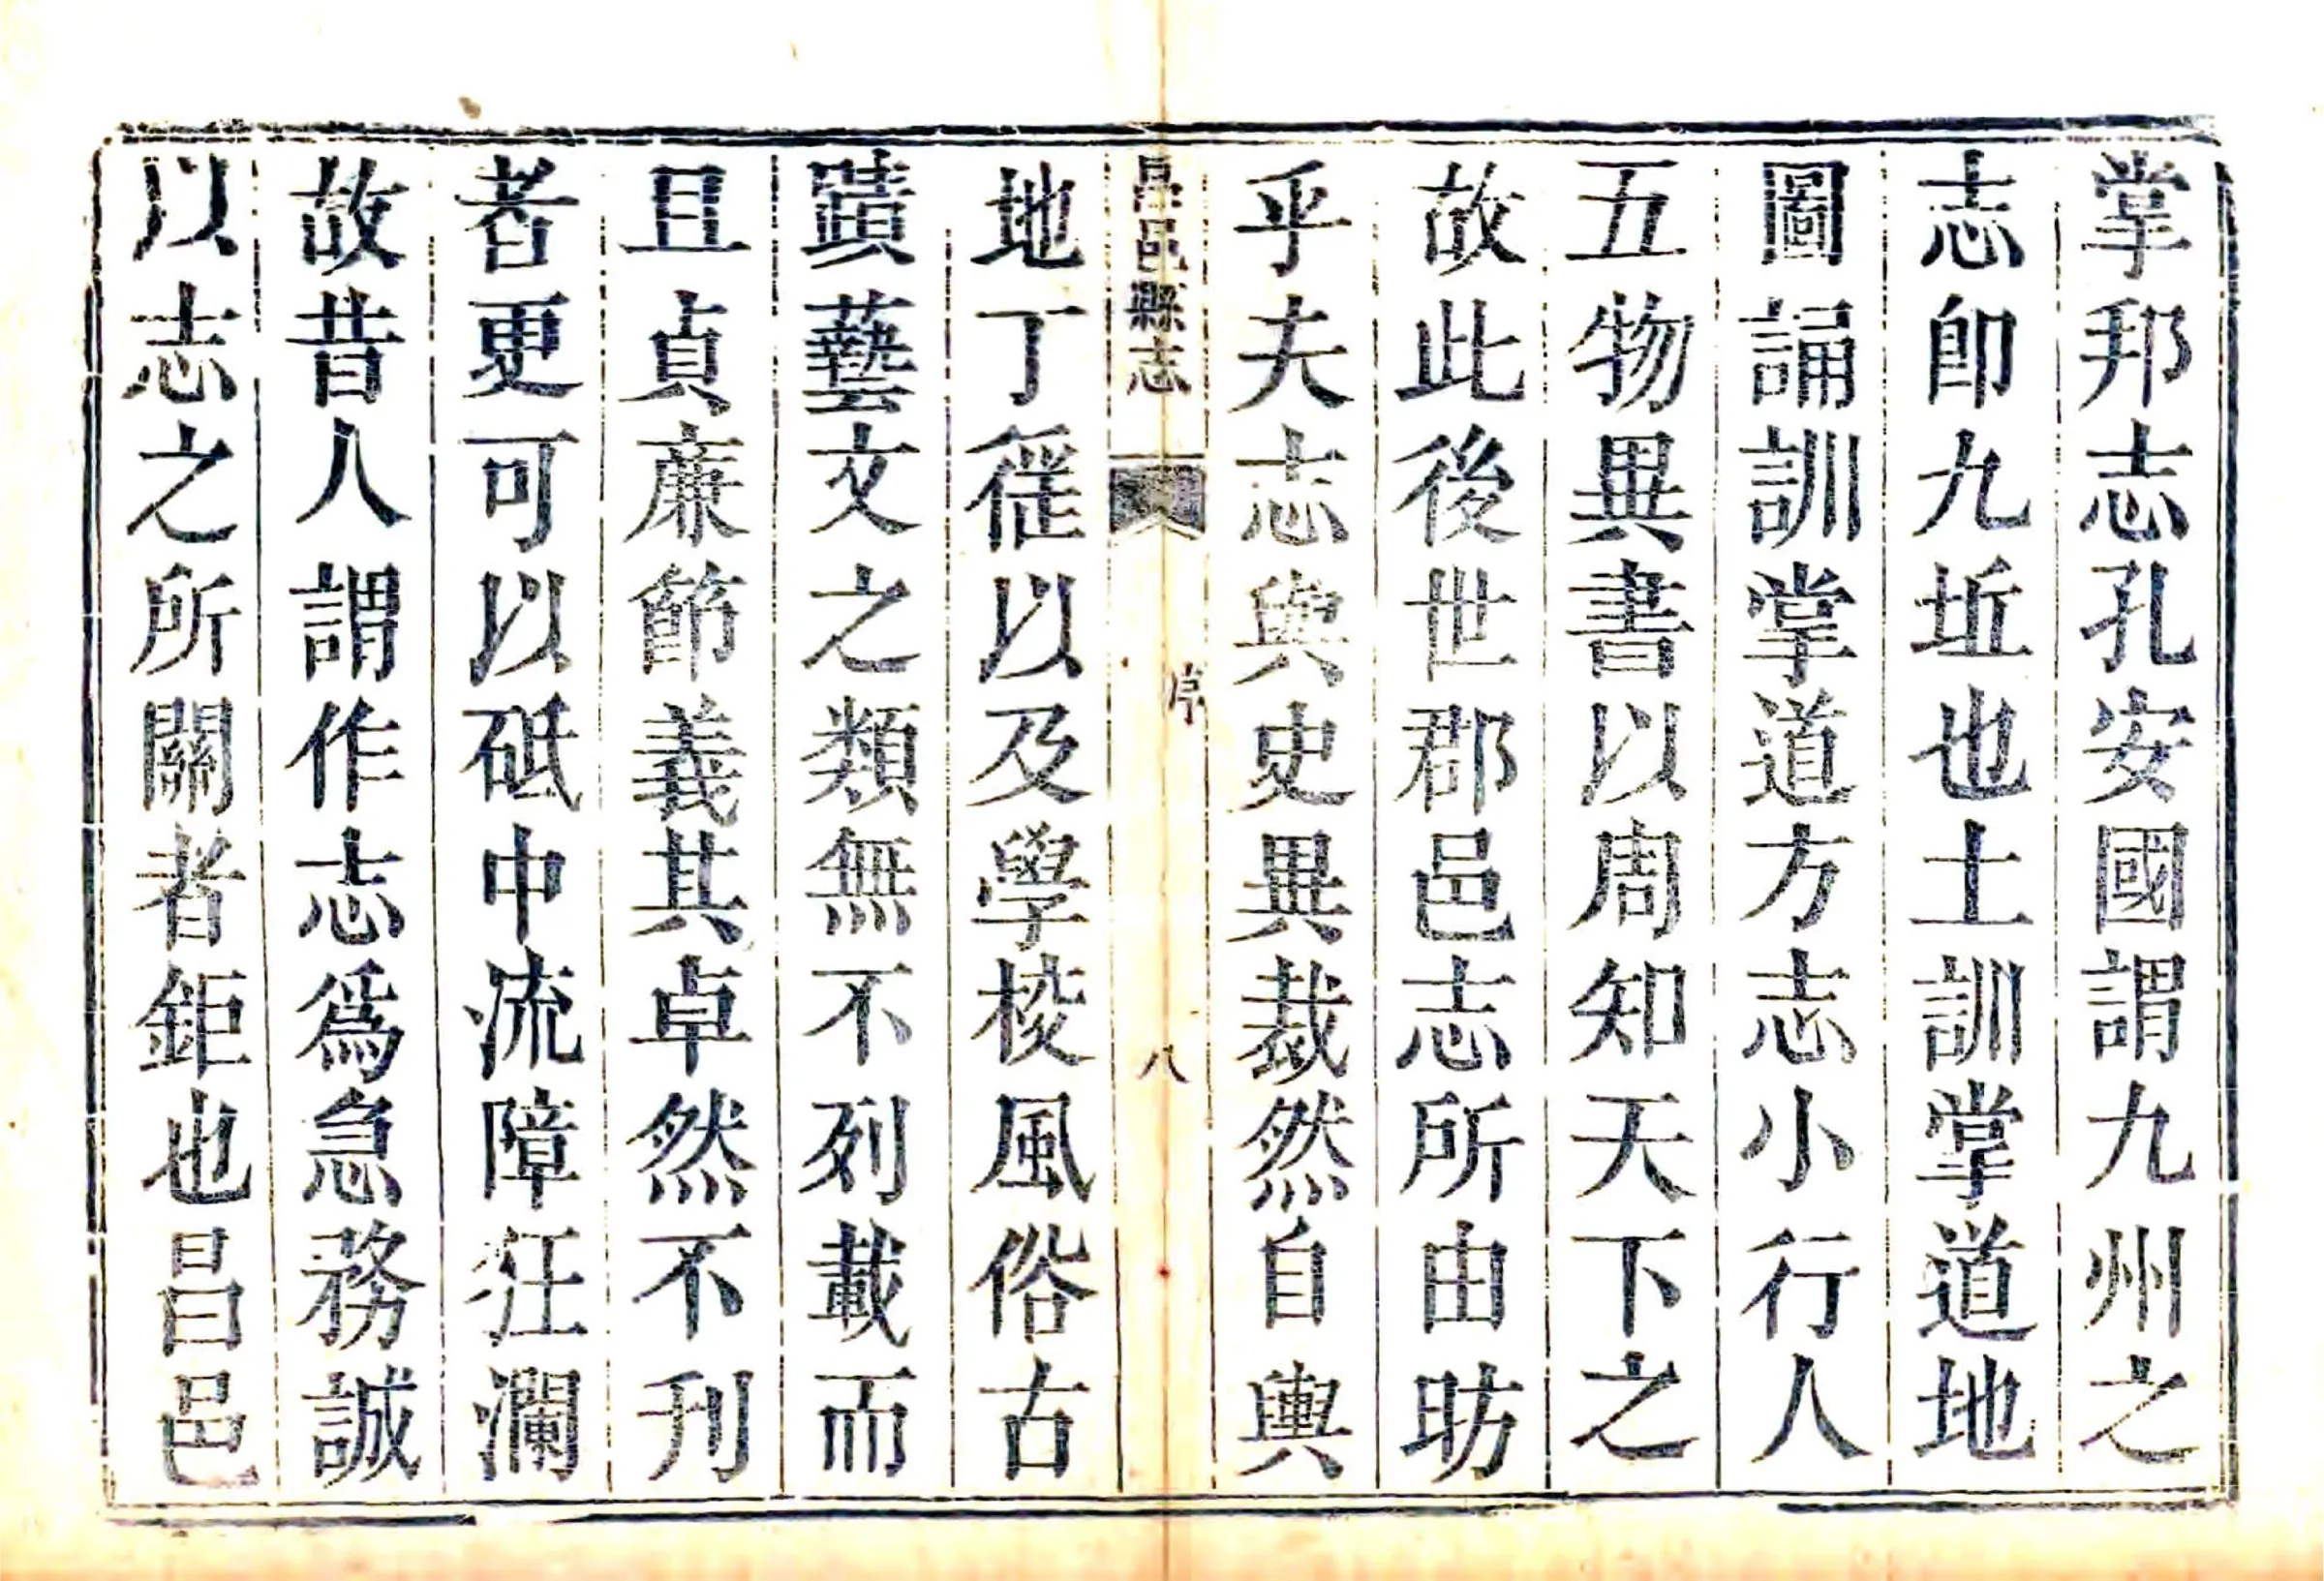 掌邦志孔安國謂九州之
志卽九坵也土訓掌道地
圖誦訓掌道方志小行人
五物異書以周知天下之
故此後世郡邑志所由昉
乎夫志與史異裁然自輿
昌邑縣志
序
八
地丁徭以及學校風俗古
蹟藝文之類無不列載而
且貞廉節義其卓然不刊
者更可以砥中流障狂瀾
故昔人謂作志爲急務誠
以志之所關者鉅也昌邑